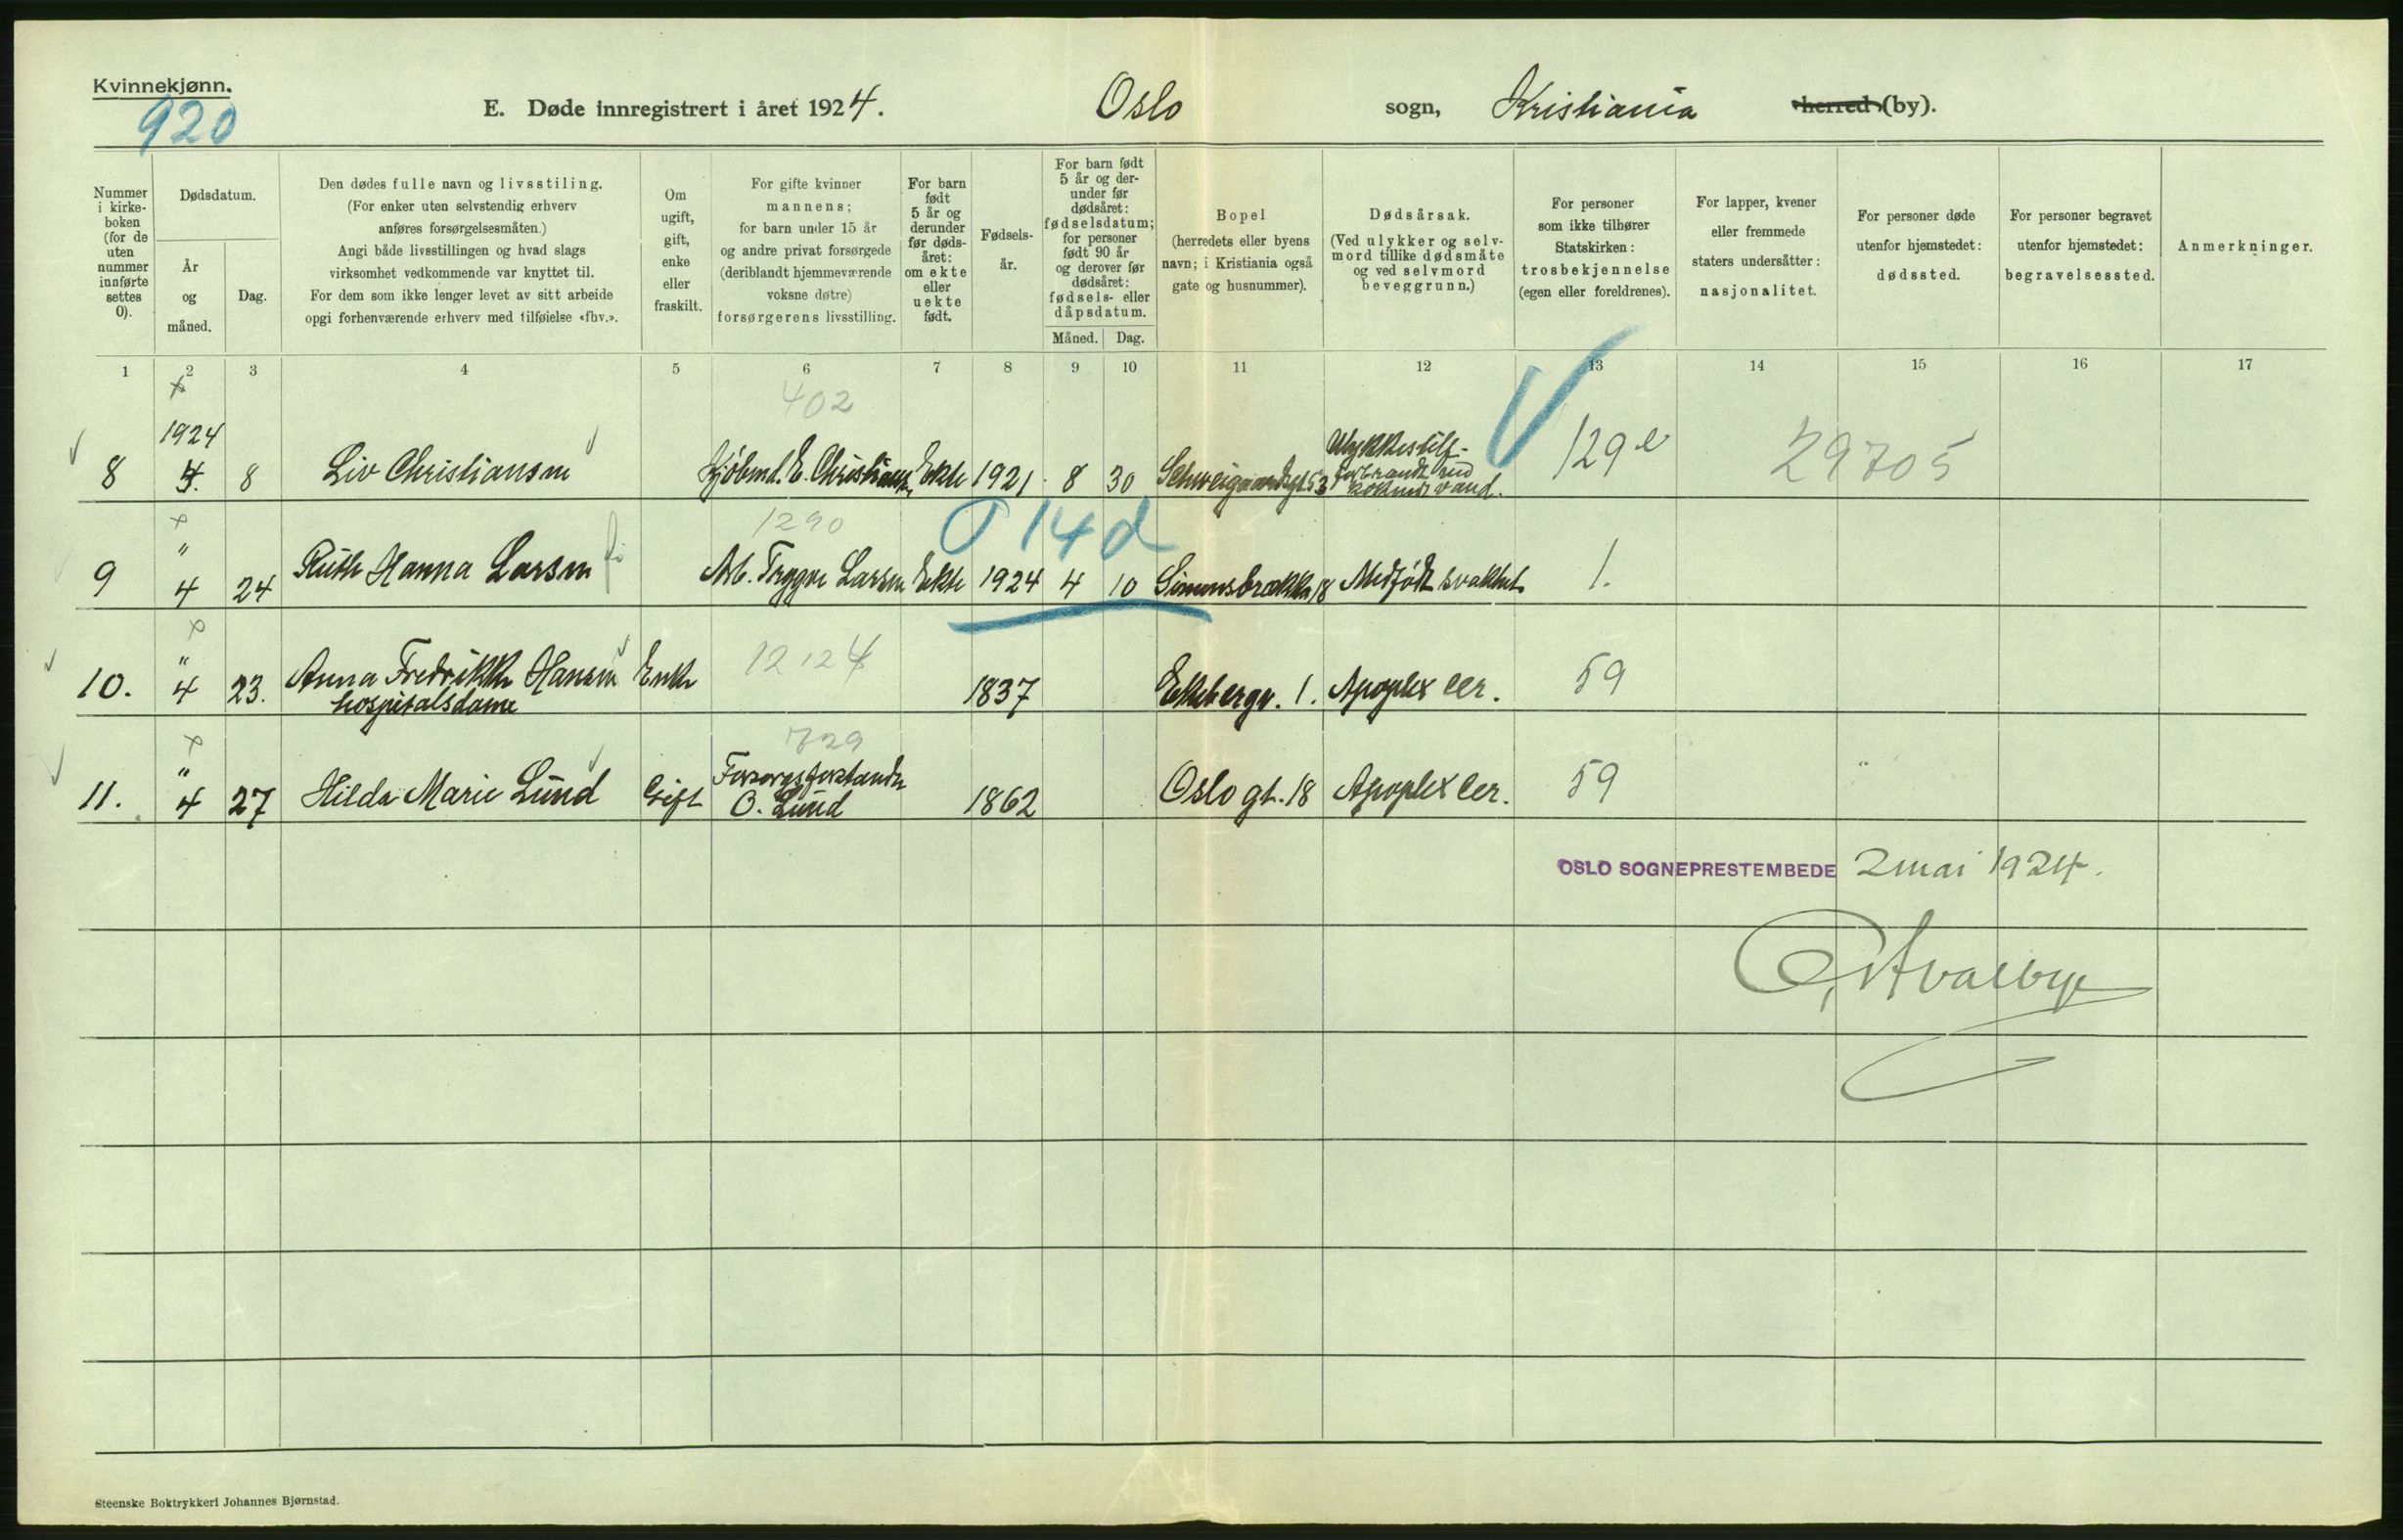 Kvinnekjønn.
920
E. Døde innregistrert i året 1924.
Oslo sogn, Kristiania herred (by).
Nummer
i kirke-
boken
(for de
uten
nummer
innførte
settes
0).
Dødsdatum.
År
og
måned.
Dag.
Den dødes fulle navn og livsstiling.
(For enker uten selvstendig erhverv
anføres forsørgelsesmåten.)
Angi både livsstillingen og hvad slags
virksomhet vedkommende var knyttet til.
For dem som ikke lenger levet av sitt arbeide
opgi forhenværende erhverv med tilføielse «fhv.».
Om
ugift,
gift,
enke
eller
fraskilt.
For gifte kvinner
mannens;
for barn under 15 år
og andre privat forsørgede
(deriblandt hjemmeværende
voksne døtre)
forsørgerens livsstilling.
For barn
født
5 år og
derunder
før døds-
året:
om ekte
eller
uekte
født.
Fødsels-
år.
For barn født
5 år og der-
under før
dødsåret:
fødselsdatum;
for personer
født 90 år
og derover før
dødsåret:
fødsels- eller
dåpsdatum.
Måned. Dag.
Bopel
(herredets eller byens
navn; i Kristiania også
gate og husnummer).
Dødsårsak.
(Ved ulykker og selv-
mord tillike dødsmåte
og ved selvmord
beveggrunn.)
For personer
som ikke tilhører
Statskirken:
trosbekjennelse
(egen eller foreldrenes).
For lapper, kvener
eller fremmede
staters undersåtter:
nasjonalitet.
For personer døde
utenfor hjemstedet:
dødssted.
For personer begravet
utenfor hjemstedet:
begravelsessted.
Anmerkninger.
1 2 3 4 5 6 7 8 9 10 11 12 13 14 15 16 17
402
1924
8 4. 8 Liv Christiansen Kjøbmd. E. Christians. Ekte 1921 8 30 Schweigaardsgt. 53 Ulykkestilf. forbrandt med kokende vand. 129 e 29705
1290 0 14 d
" 9 4 24 Ruth Hanna Larsen Arb. Trygve Larsen Ekte 1924 4 10 Simensbrækka 18 Medfødt svakhet 1.
12124
" 10. 4 23. Anna Fredrikke Hansen Enke 1837 Ekebergv. 1. Apoplex cer. 59
hospitalsdame
729
" 11. 4 27 Hilda Marie Lund Gift Forsorgsforstander 1862 Oslo gt. 18 Apoplex cer. 59 "
O. Lund
OSLO SOGNEPRESTEMBEDE 2 mai 1924.
Steenske Boktrykkeri Johannes Bjørnstad.